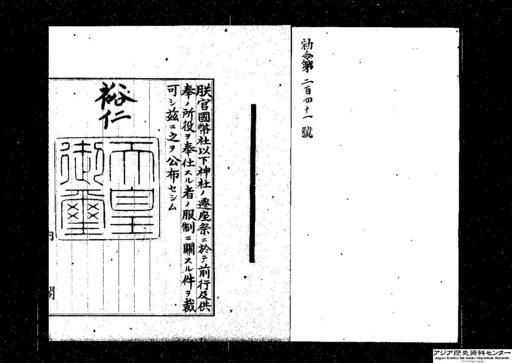 勅令第二百四十一號
朕官國幣社以下神社ノ遷座祭ニ於テ前行及供
奉ノ所役ヲ奉仕スル者ノ服制ニ關スル件ヲ裁
可シ茲ニ之ヲ公布セシム
裕仁
天皇
御璽
内閣
アジア歴史資料センター
Japan Center for Asian Historical Records